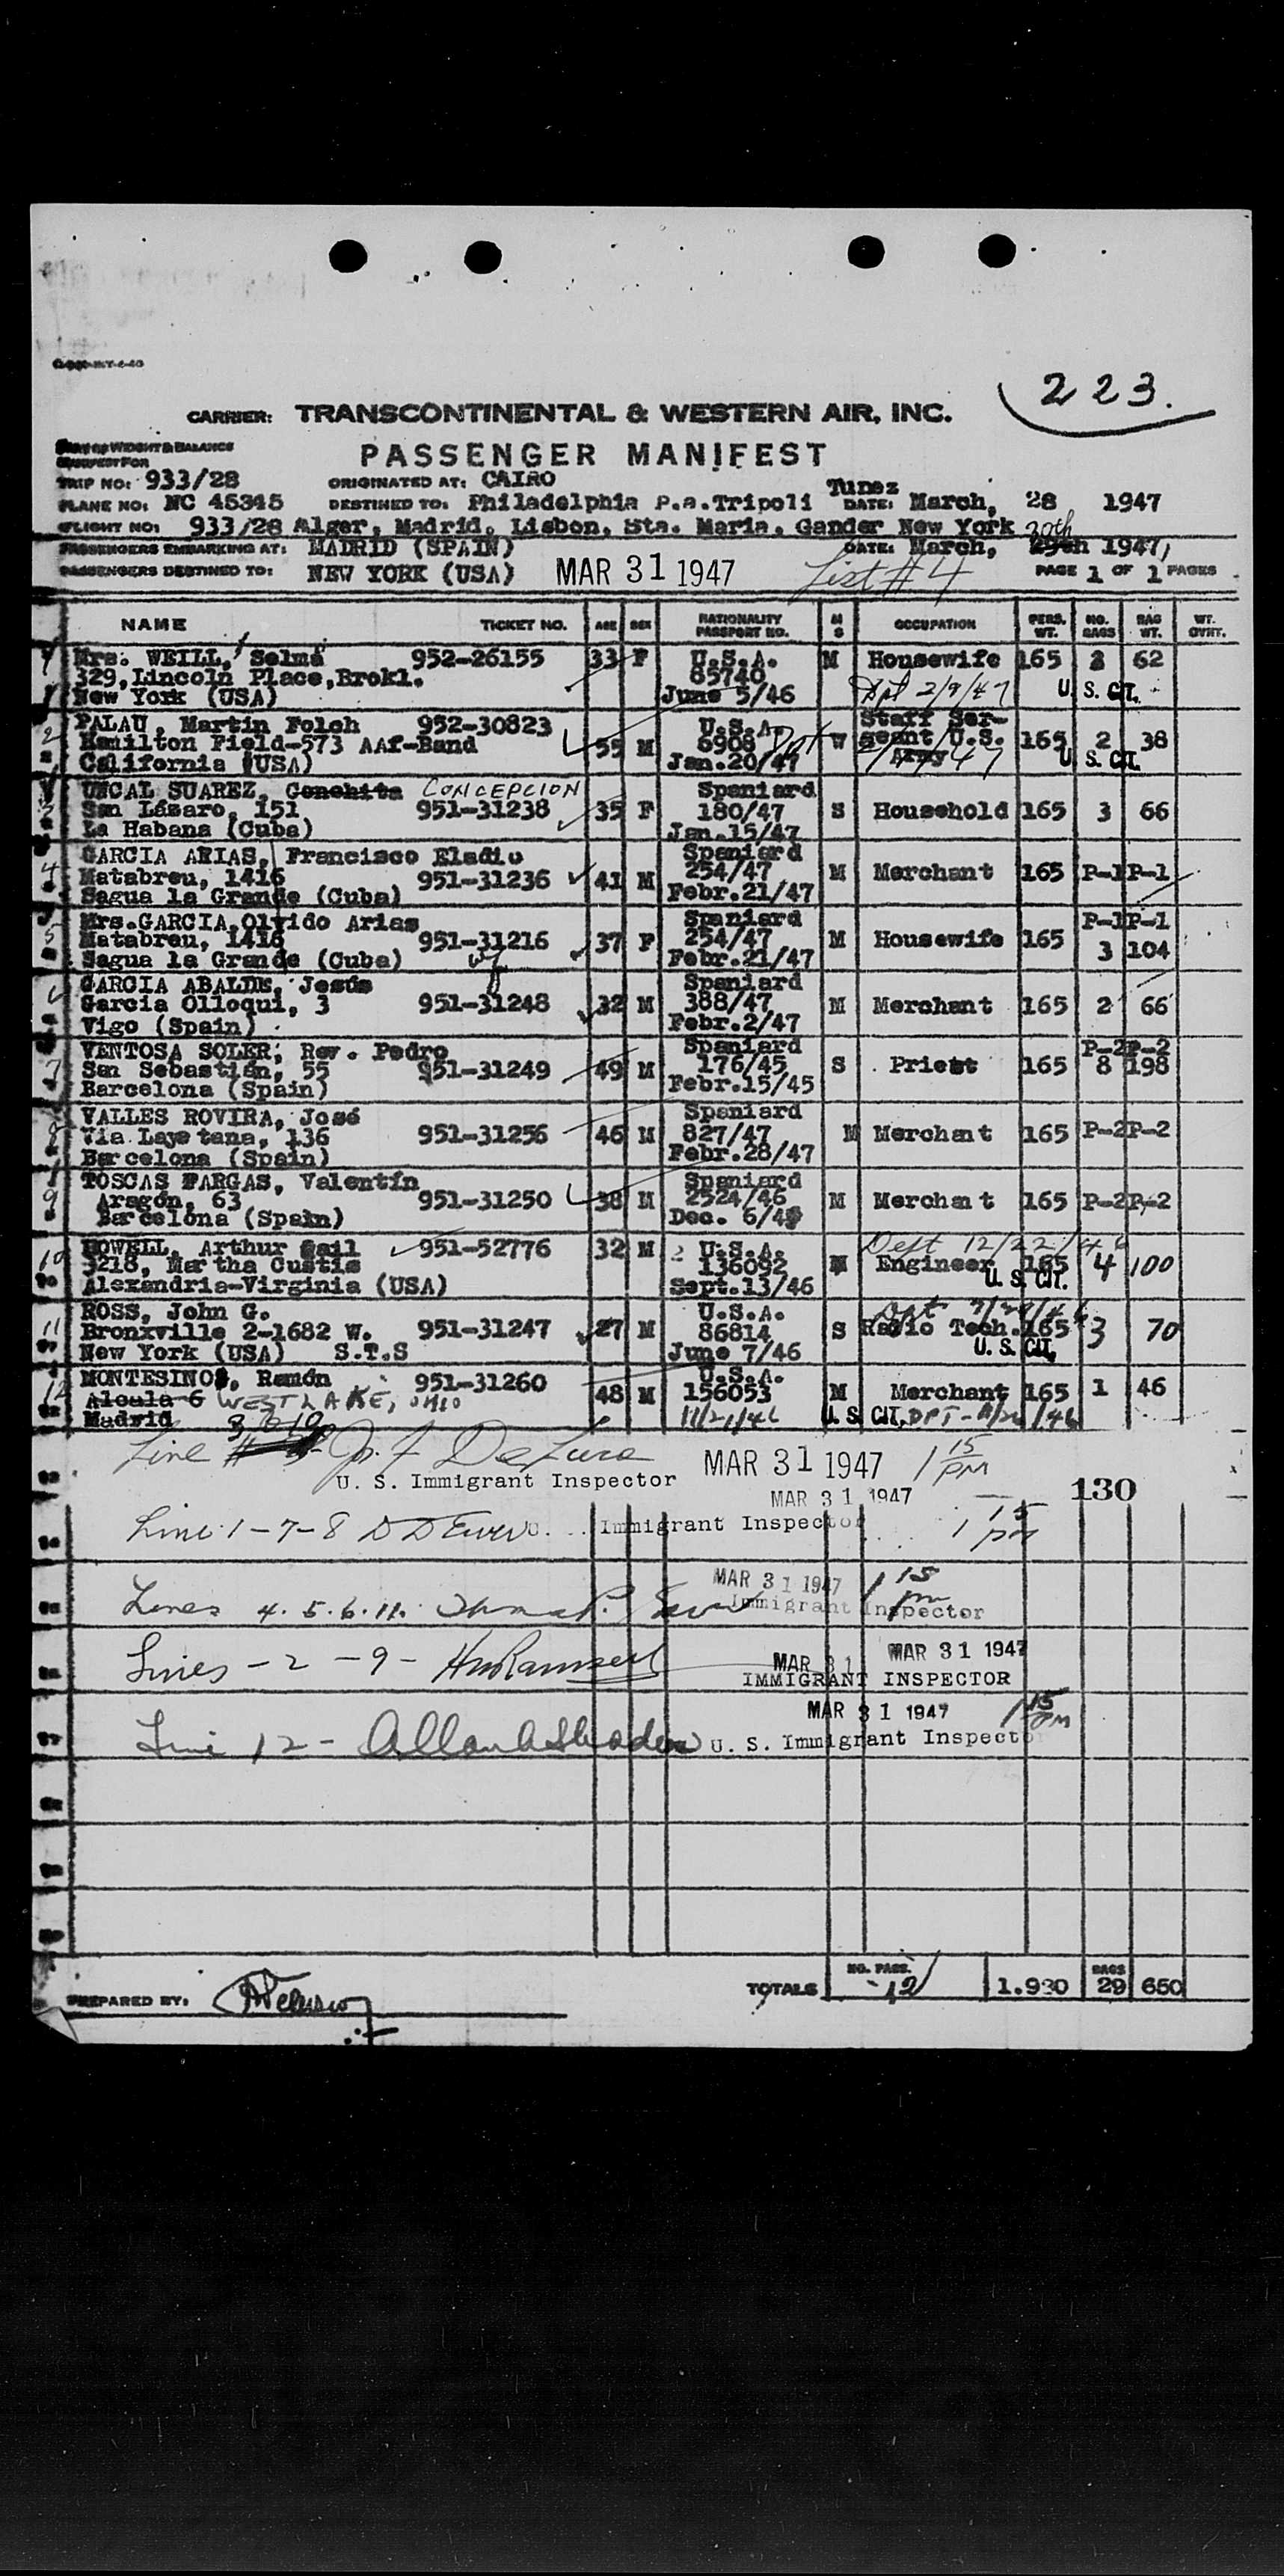 223.
CARRIER: TRANSCONTINENTAL & WESTERN AIR, INC.
PASSENGER MANIFEST
TRIP NO: 933/28 ORIGINATED AT: CAIRO
PLANE NO: NC 45345 DESTINED TO: Philadelphia P.a.Tripoli Tunez DATE: March, 28 1947
FLIGHT NO: 933/28 Alger, Madrid, Lisbon, Sta. Maria, Gander New York
PASSENGERS EMBARKING AT: MADRID (SPAIN) DATE: March, 29th 30th 1947
PASSENGERS DESTINED TO: NEW YORK (USA) MAR 31 1947 List #4 PAGE 1 OF 1 PAGES
NAME TICKET NO. AGE SEX NATIONALITY PASSPORT NO. M S OCCUPATION PERS. WT. NO. BAGS BAG WT. WT. OVHT.
1 Mrs. WEILL, Selma 952-26155 33 F U.S.A. M Housewife 165 3 62
329, Lincoln Place, Brokl. 85740
New York (USA) June 5/46 Dpt 2/9/47 U. S. CIT.
2 PALAU, Martin Folch 952-30823 U.S.A. Staff Ser-
Hamilton Field-573 AAf-Band 55 M 6908 Dpt W geant U.S. 165 2 38
California (USA) Jan.20/47 U. S. CIT.
3 UNCAL SUAREZ, Conchita CONCEPCION Spaniard
San Lázaro, 151 951-31238 35 F 180/47 S Household 165 3 66
La Habana (Cuba) Jan.15/47
4 GARCIA ARIAS, Francisco Eladio Spaniard
Matabreu, 1416 951-31236 41 M 254/47 M Merchant 165 P-1 P-1
Sagua la Grande (Cuba) Febr.21/47
5 Mrs.GARCIA,Olvido Arias Spaniard P-1 P-1
Matabreu, 1416 951-31216 37 F 254/47 M Housewife 165 3 104
Sagua la Grande (Cuba) Febr.21/47
6 GARCIA ABALDE, Jesús Spaniard
Garcia Olloqui, 3 951-31248 32 M 388/47 M Merchant 165 2 66
Vigo (Spain) Febr.2/47
7 VENTOSA SOLER, Rev. Pedro Spaniard P-2 P-2
San Sebastián, 55 951-31249 49 M 176/45 S Priest 165 8 198
Barcelona (Spain) Febr.15/45
8 VALLES ROVIRA, José Spaniard
Via Layetana, 136 951-31256 46 M 827/47 M Merchant 165 P-2 P-2
Barcelona (Spain) Febr.28/47
9 TOSCAS FARGAS, Valentín Spaniard
Aragón, 63 951-31250 38 M 2524/46 M Merchant 165 P-2 P-2
Barcelona (Spain) Dec. 6/4
10 HOWELL, Arthur Gail 951-52776 32 M U.S.A. Dept 12/22/46
3218, Martha Custis 136092 M Engineer 165 4 100
Alexandria-Virginia (USA) Sept.13/46 U. S. CIT.
11 ROSS, John G. U.S.A. Dpt
Bronxville 2-1682 W. 951-31247 27 M 86814 S Radio Tech. 165 3 70
New York (USA) S.T.S June 7/46 U. S. CIT.
12 MONTESINOS, Ramón 951-31260 U.S.A.
Alcala 6 WESTLAKE, OHIO 48 M 156053 M Merchant 165 1 46
Madrid 11/21/46 U. S. CIT. DPT-
Line # 3 10
U. S. Immigrant Inspector MAR 31 1947 1 15 PM
MAR 31 1947 130
Line 1-7-8 Immigrant Inspector 1 15 pm
MAR 31 1947 1 15 pm
Lines 4.5.6.11. Immigrant Inspector
Lines - 2 - 9 - MAR 31 MAR 31 1947
IMMIGRANT INSPECTOR
MAR 31 1947 1 15 PM
Line 12 - U. S. Immigrant Inspector
TOTALS NO. PASS. 12 1.980 BAGS 29 650
PREPARED BY: